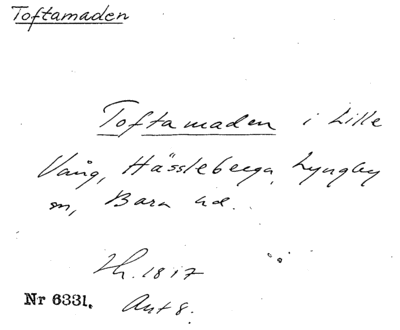 Toftamaden
Toftamaden i Lille
Vång, Hässleberga, Lyngby
sn, Bara hd.
Lh. 1817
Nr 6331. Akt 8.